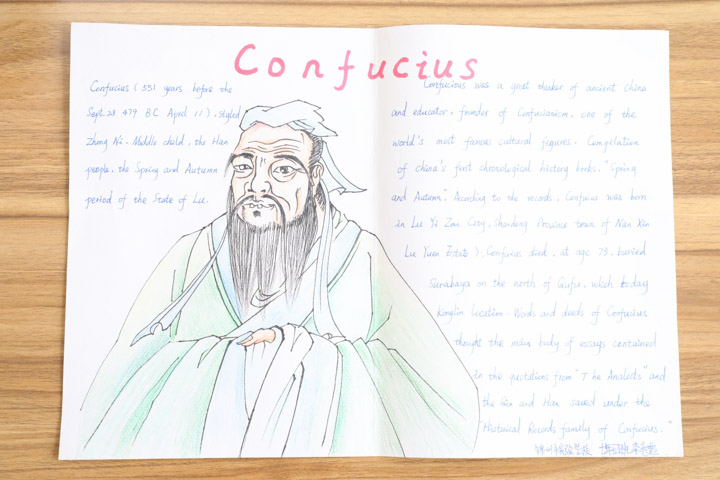 Confucius
Confucius ( 551 years before the
Sept. 28 479 B.C. April 11 ), styled
Zhong Ni. Middle child, the Han
people, the Spring and Autumn
period of the State of Lu.
Confucious was a great thinker of ancient china
and educator, founder of Confucianism, one of the
world's most famous cultural figures. Compilation
of china's first chronological history books, "Spring
and Autumn". According to the records, Confucius was born
in Lu Yi Zou City, Shandong Province town of Nan Xin
Lu Yuan Estate ); Confucius died, at age 73, buried
Surabaya on the north of Qufu, which today
Konglin location. Words and deeds of Confucius
thought the main body of essays contained
in the quotations from "The Analects" and
the Qin and Han saved under the
"Historical Records family of Confucius."